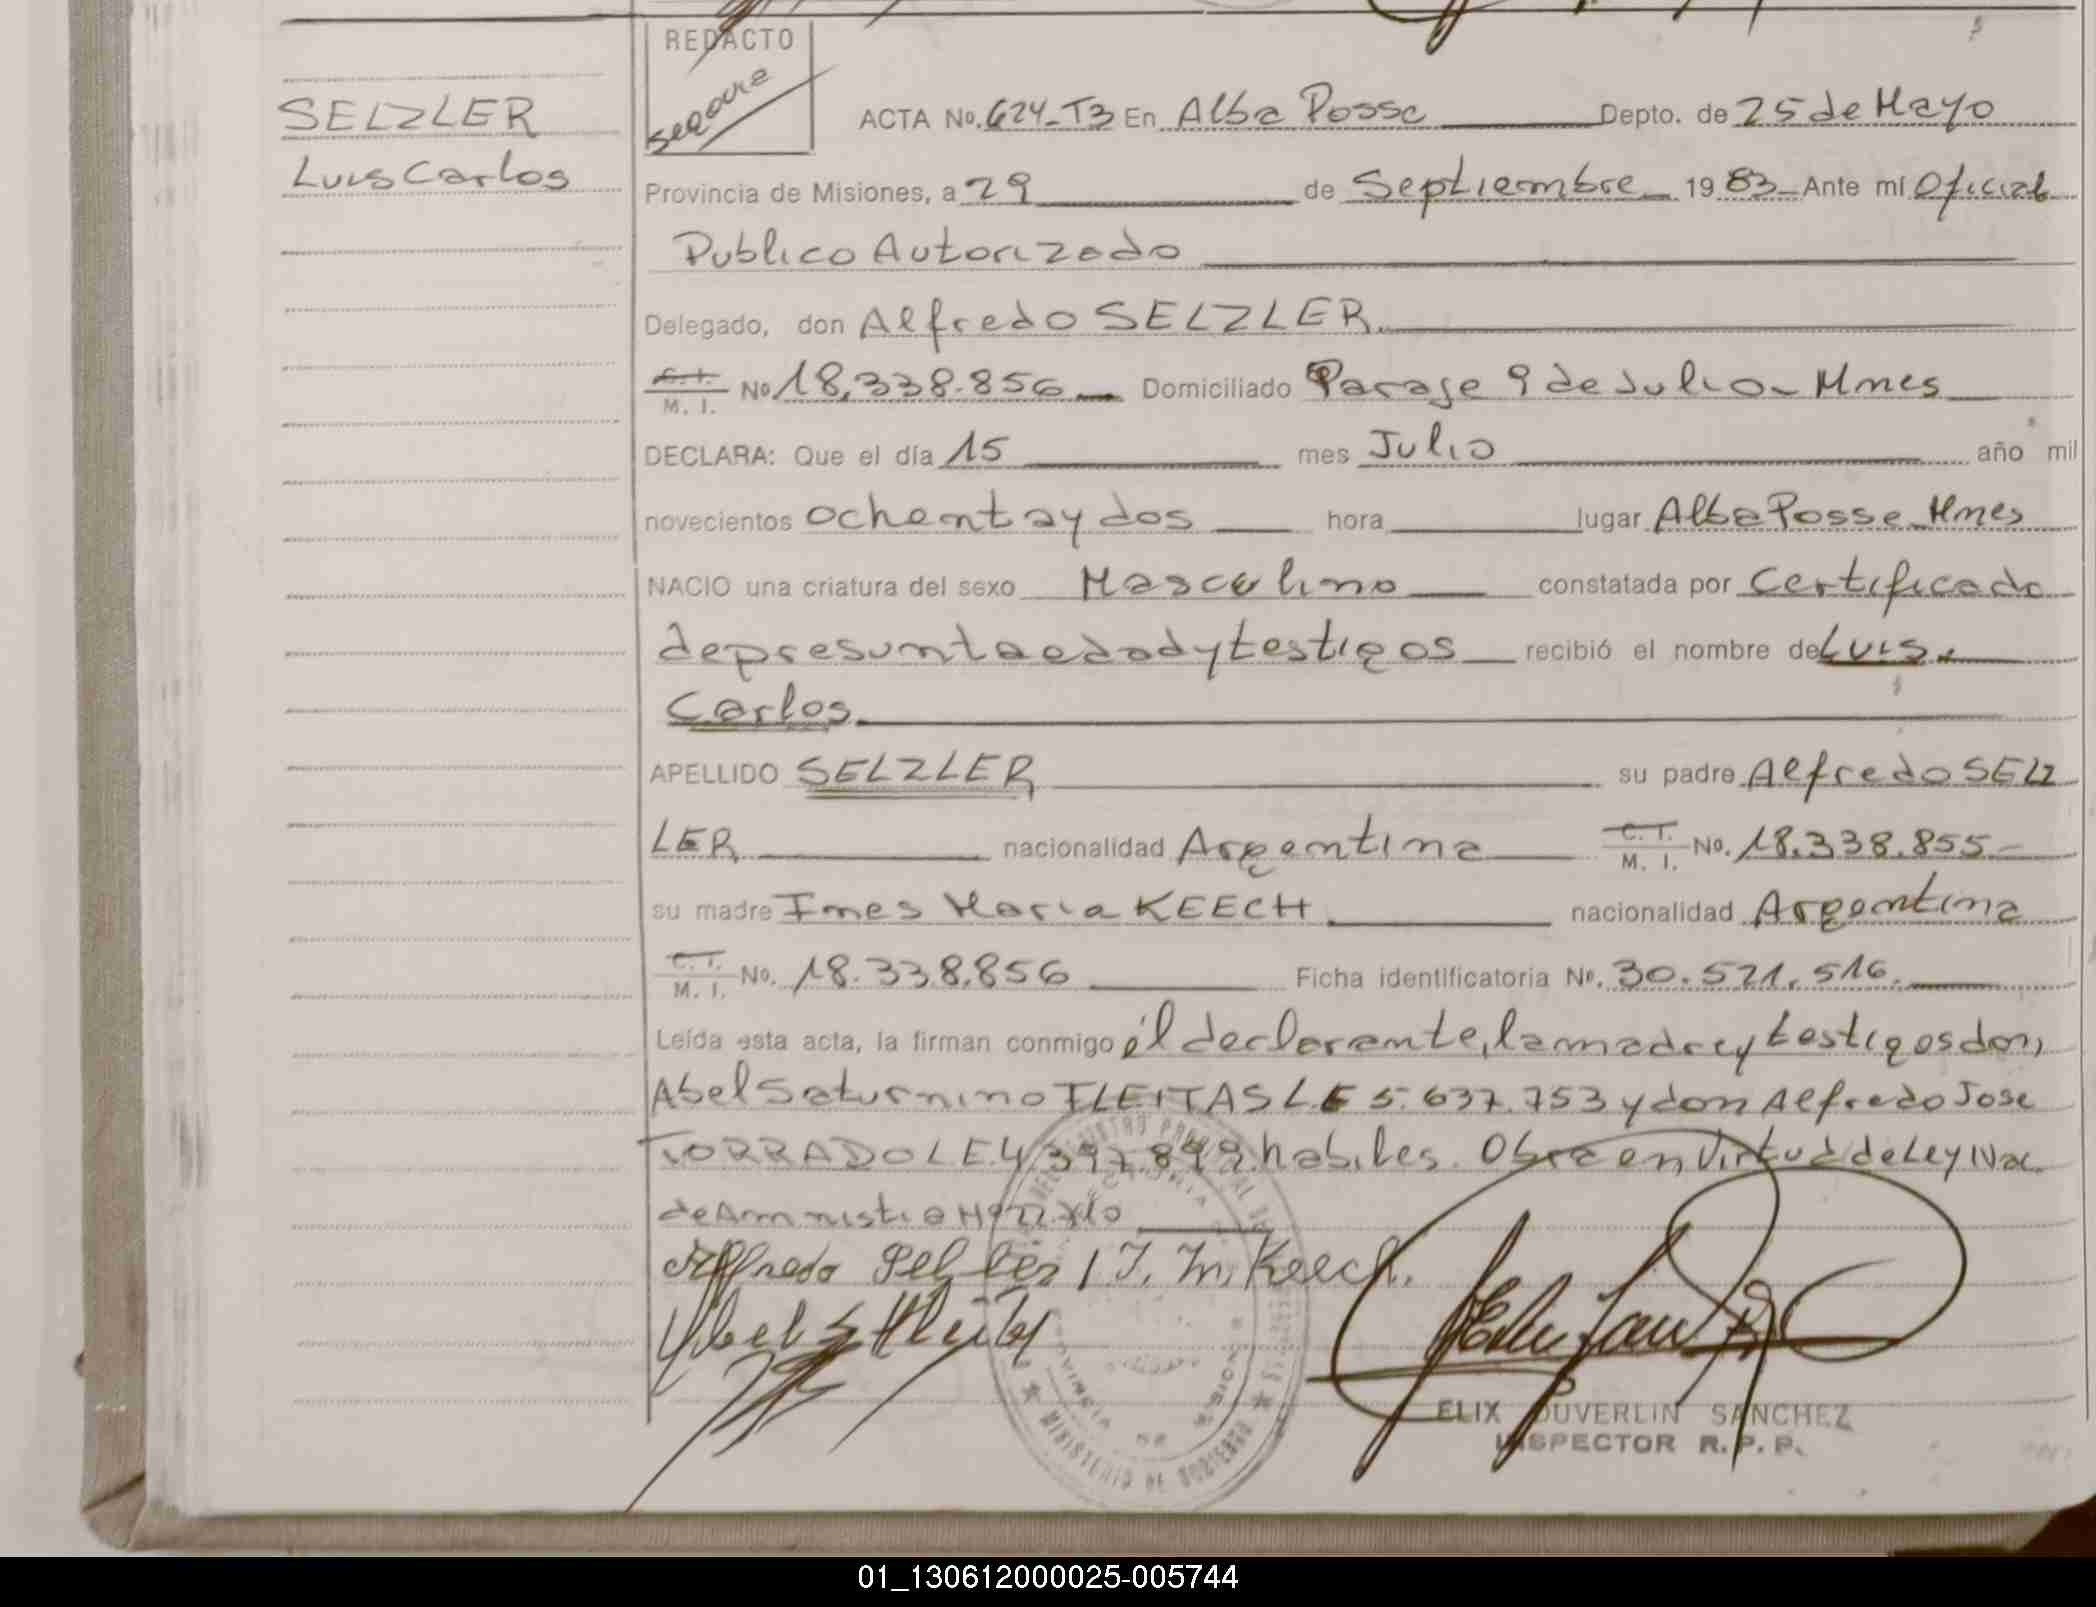 REDACTO
SELZLER
Luis Carlos
ACTA No. 624-T3 En Alba Posse Depto. de 25 de Mayo
Provincia de Misiones, a 29 de Septiembre 19 83 Ante mí Oficial
Publico Autorizado
Delegado, don Alfredo SELZLER
C.I. M. I. No 18.338.856 Domiciliado Paraje 9 de Julio - Mnes
DECLARA: Que el día 15 mes Julio año mil
novecientos ochenta y dos hora lugar Alba Posse Mnes
NACIO una criatura del sexo Masculino constatada por Certificado
de presunta edad y testigos recibió el nombre de Luis
Carlos
APELLIDO SELZLER su padre Alfredo SELZ
LER nacionalidad Argentina C.I. M. I. No. 18.338.855
su madre Ines Maria KEECH nacionalidad Argentina
C.I. M. I. No. 18.338.856 Ficha identificatoria No. 30.521.516
Leída esta acta, la firman conmigo él declarante, la madre y testigos don,
Abel Saturnino FLEITAS L.E 5.637.753 y don Alfredo Jose
TORRADO L E. 4.397.899 habiles. Obra en Virtud de Ley Nac.
de Amnistia
Alfredo Selzler / I. M. Keech.
MINISTERIO DE GOBIERNO
PROVINCIA DE MISIONES
ELIX DUVERLIN SANCHEZ
INSPECTOR R. P. P.
01_130612000025-005744